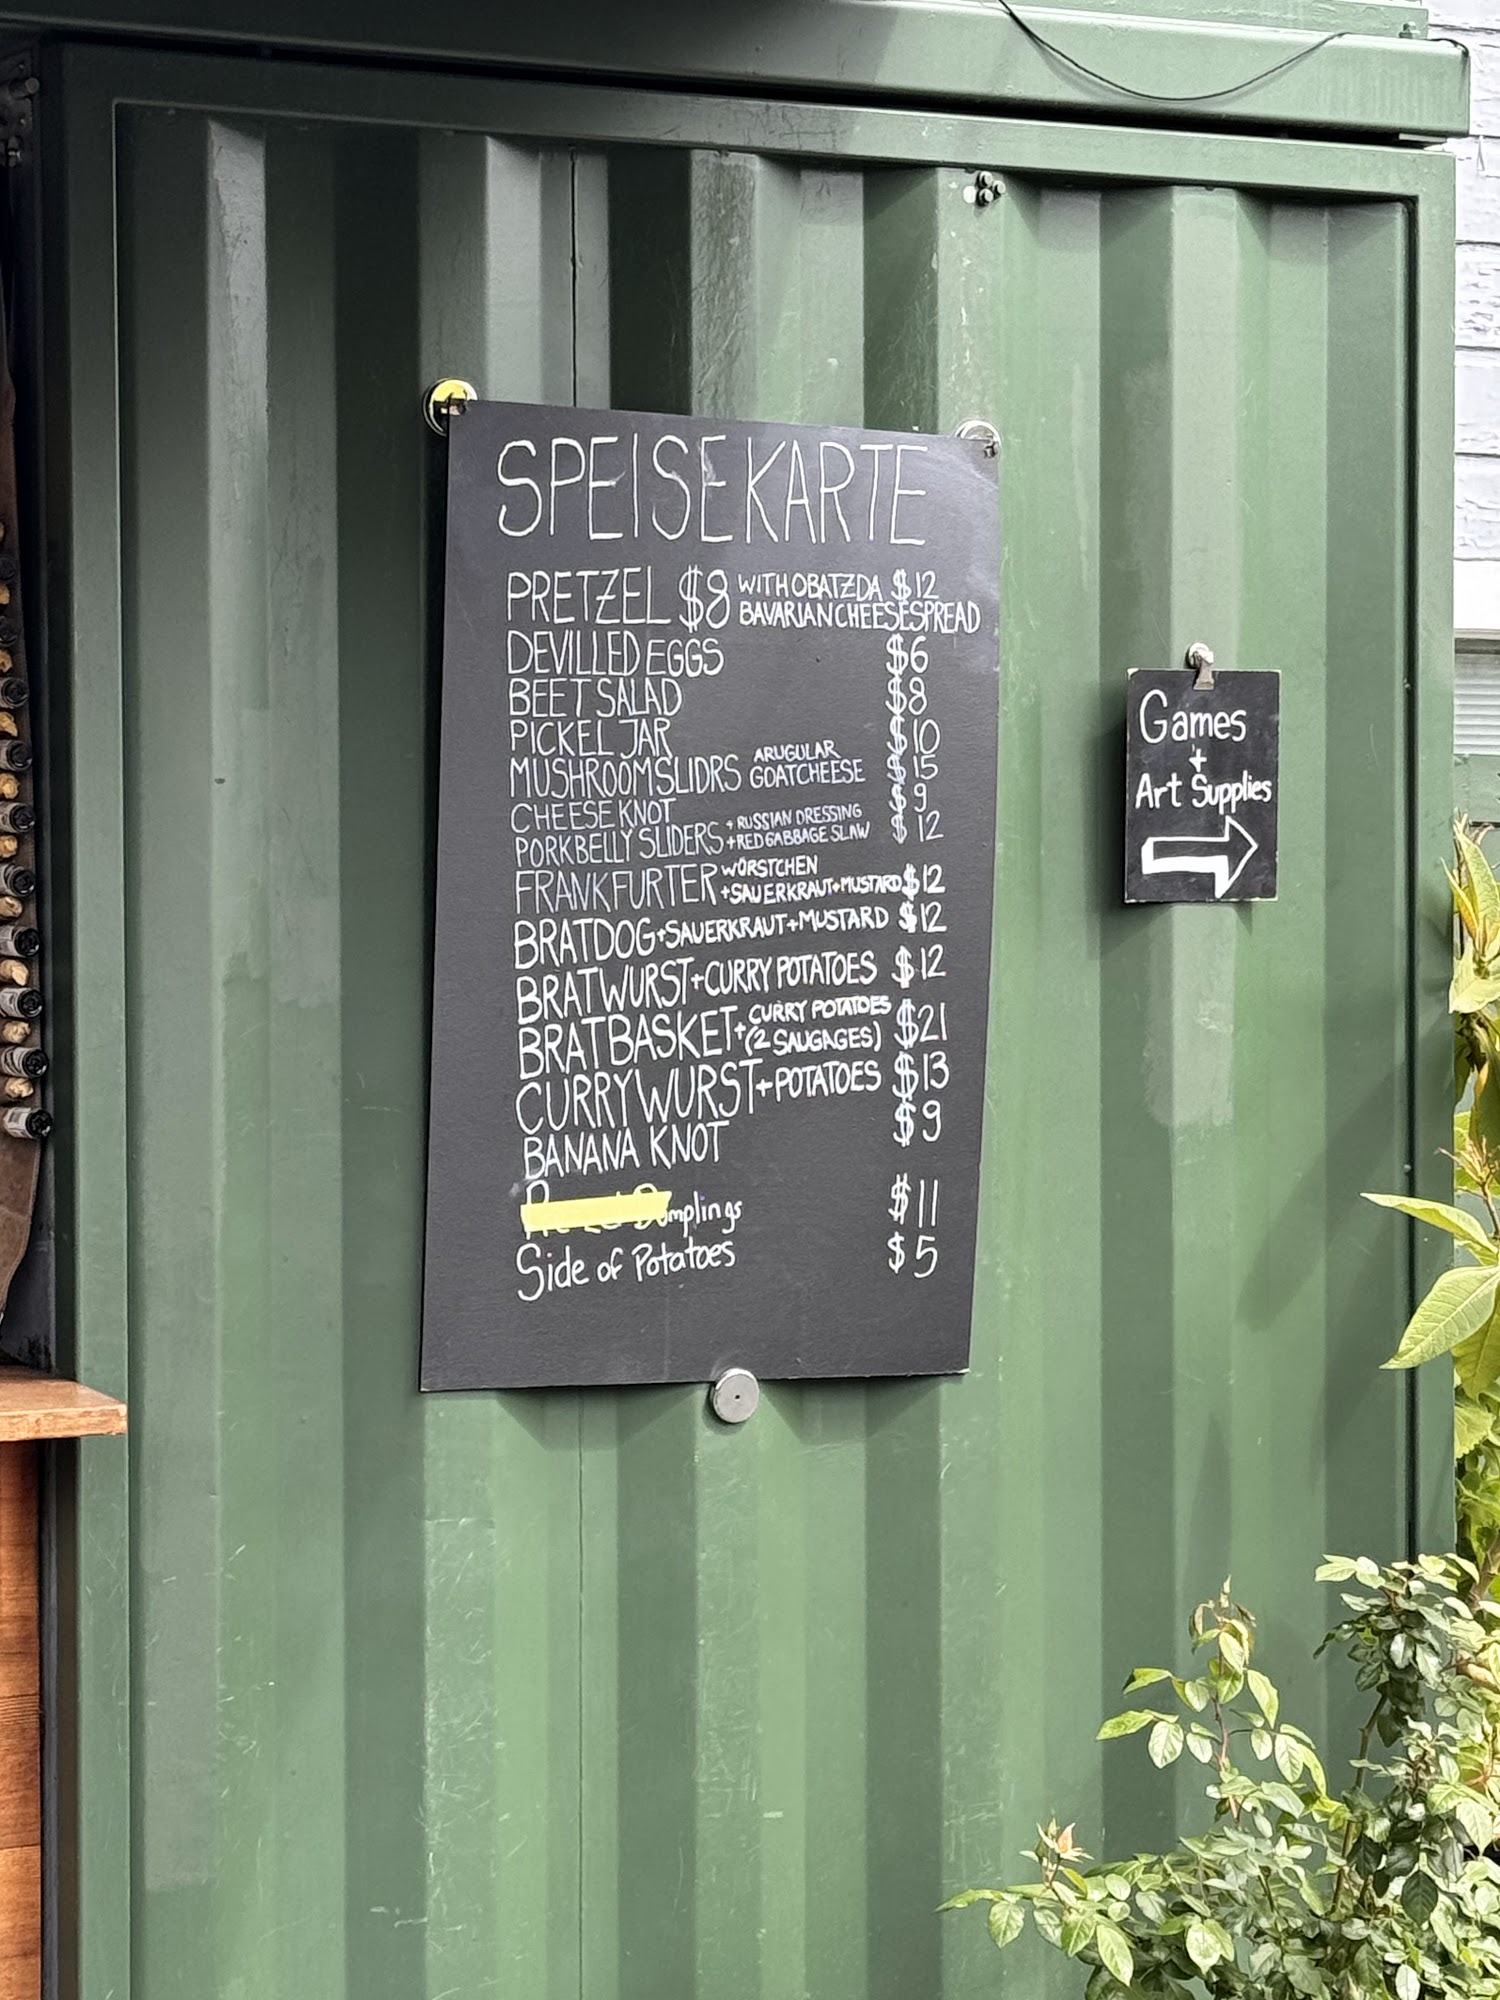 SPEISEKARTE
PRETZEL $8 WITH OBATZDA $12
BAVARIAN CHEESESPREAD
DEVILLED EGGS $6
BEET SALAD $8
PICKEL JAR $10
MUSHROOM SLIDRS ARUGULAR GOATCHEESE $15
CHEESE KNOT $9
PORKBELLY SLIDERS + RUSSIAN DRESSING + RED GABBAGE SLAW $12
FRANKFURTER WÜRSTCHEN + SAUERKRAUT + MUSTARD $12
BRATDOG + SAUERKRAUT + MUSTARD $12
BRATWURST + CURRY POTATOES $12
BRATBASKET + CURRY POTATOES (2 SAUGAGES) $21
CURRYWURST + POTATOES $13
BANANA KNOT $9
Dumplings $11
Side of Potatoes $5
Games
+
Art Supplies